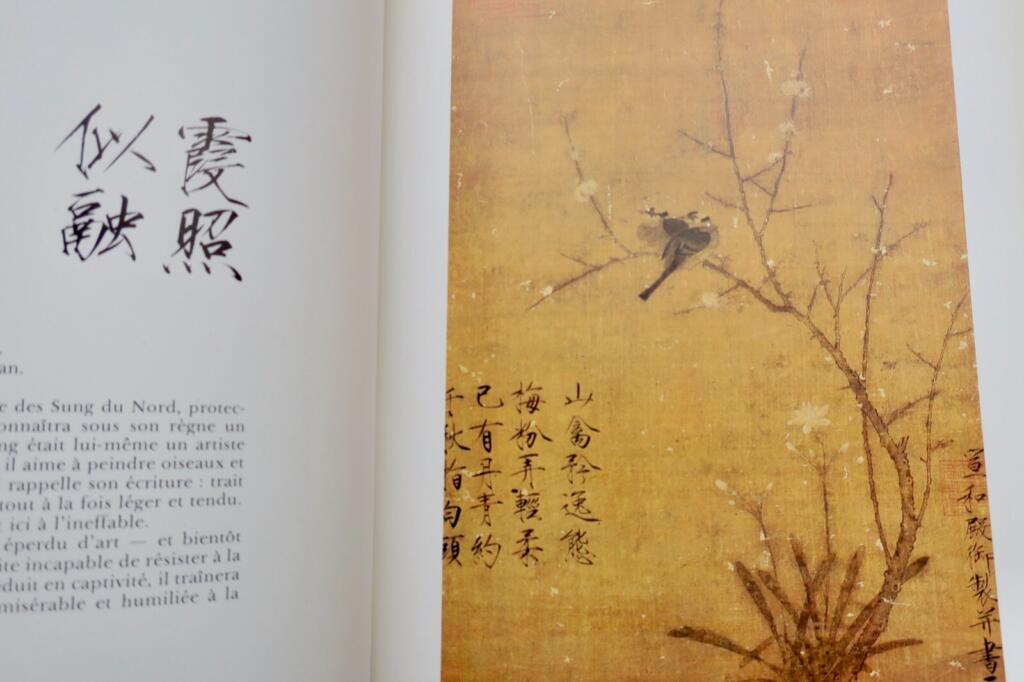 霞照
似融
an.
e des Sung du Nord, protec-
onnaîtra sous son règne un
ng était lui-même un artiste
il aime à peindre oiseaux et
rappelle son écriture : trait
tout à la fois léger et tendu.
ici à l'ineffable.
éperdu d'art — et bientôt
ite incapable de résister à la
duit en captivité, il traînera
misérable et humiliée à la
宣和殿御製并書
山禽矜逸態
梅粉弄輕柔
已有丹青約
千秋指白頭